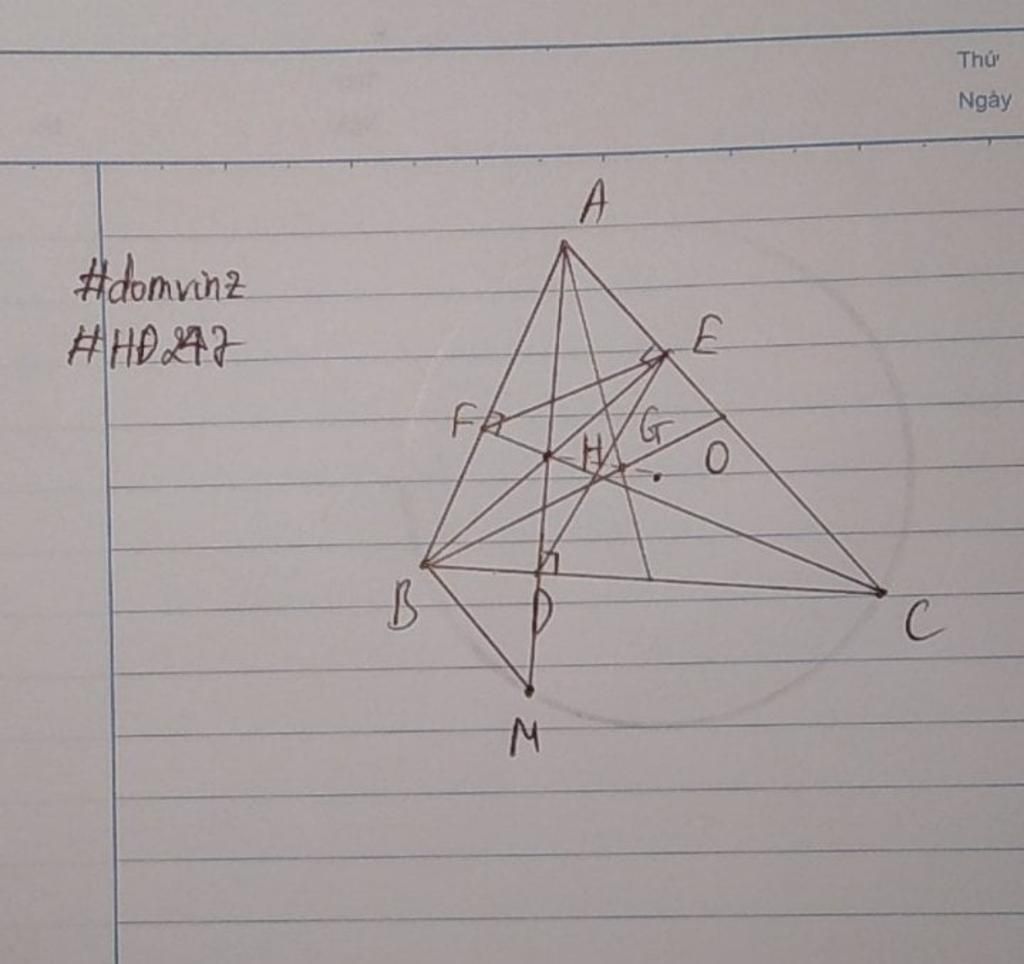 Thứ
Ngày
A
#domvinz
#HD247
E
F
H
G
O
B
D
C
M